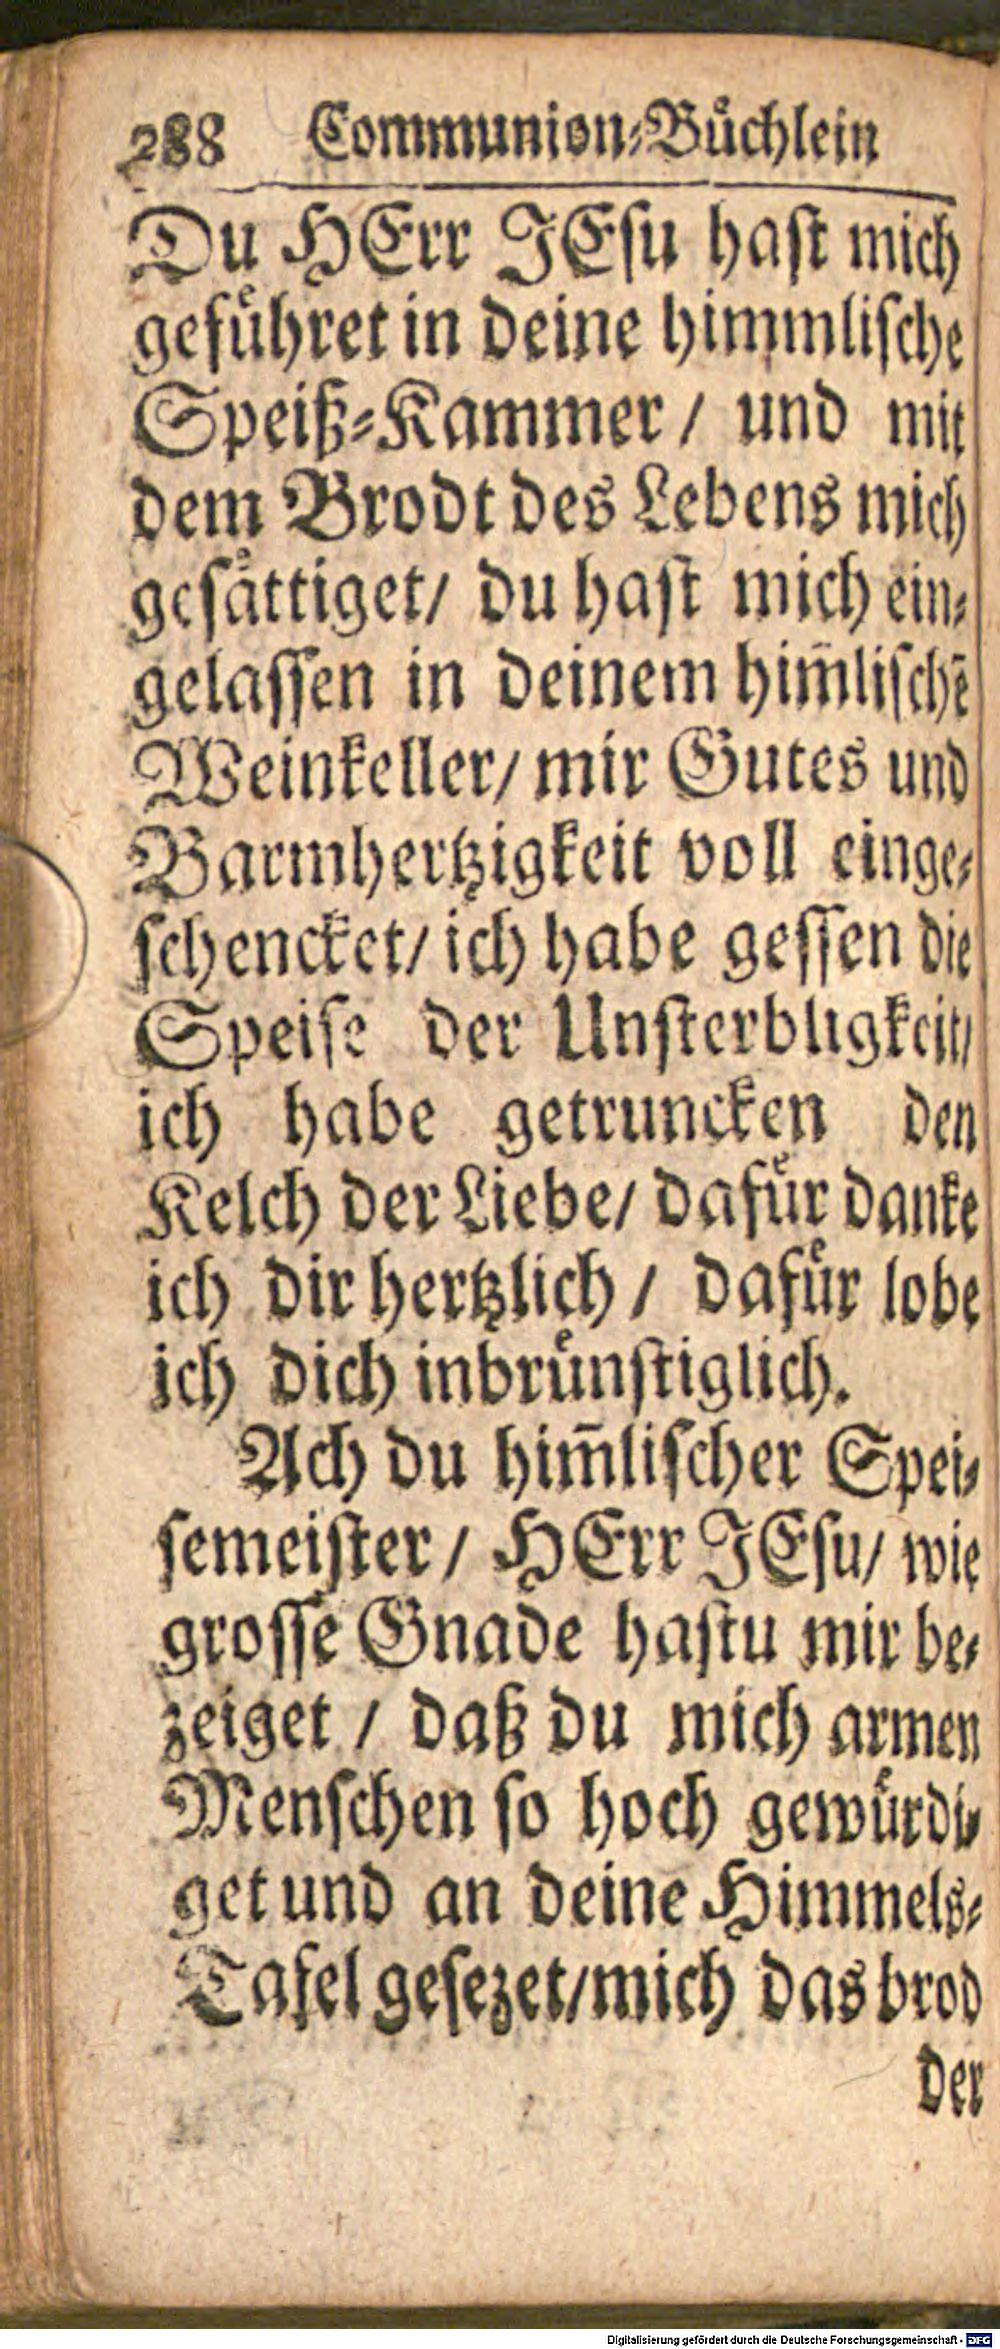 288 Communion-Bůchlein
Du HErr JEsu hast mich
gefůhret in deine himmlische
Speiß-Kammer / und mit
dem Brodt des Lebens mich
gesåttiget/ du hast mich ein-
gelassen in deinem him̄lischē
Weinkeller/ mir Gutes und
Barmhertzigkeit voll einge-
schencket/ ich habe gessen die
Speise der Unsterbligkeit/
ich habe getruncken den
Kelch der Liebe/ dafůr danke
ich dir hertzlich / dafůr lobe
ich dich inbrůnstiglich.
Ach du him̄lischer Spei-
semeister / HErr JEsu/ wie
grosse Gnade hastu mir be-
zeiget / daß du mich armen
Menschen so hoch gewůrdi-
get und an deine Himmels-
Tafel gesezet/mich das brod
der
Digitalisierung gefördert durch die Deutsche Forschungsgemeinschaft - DFG